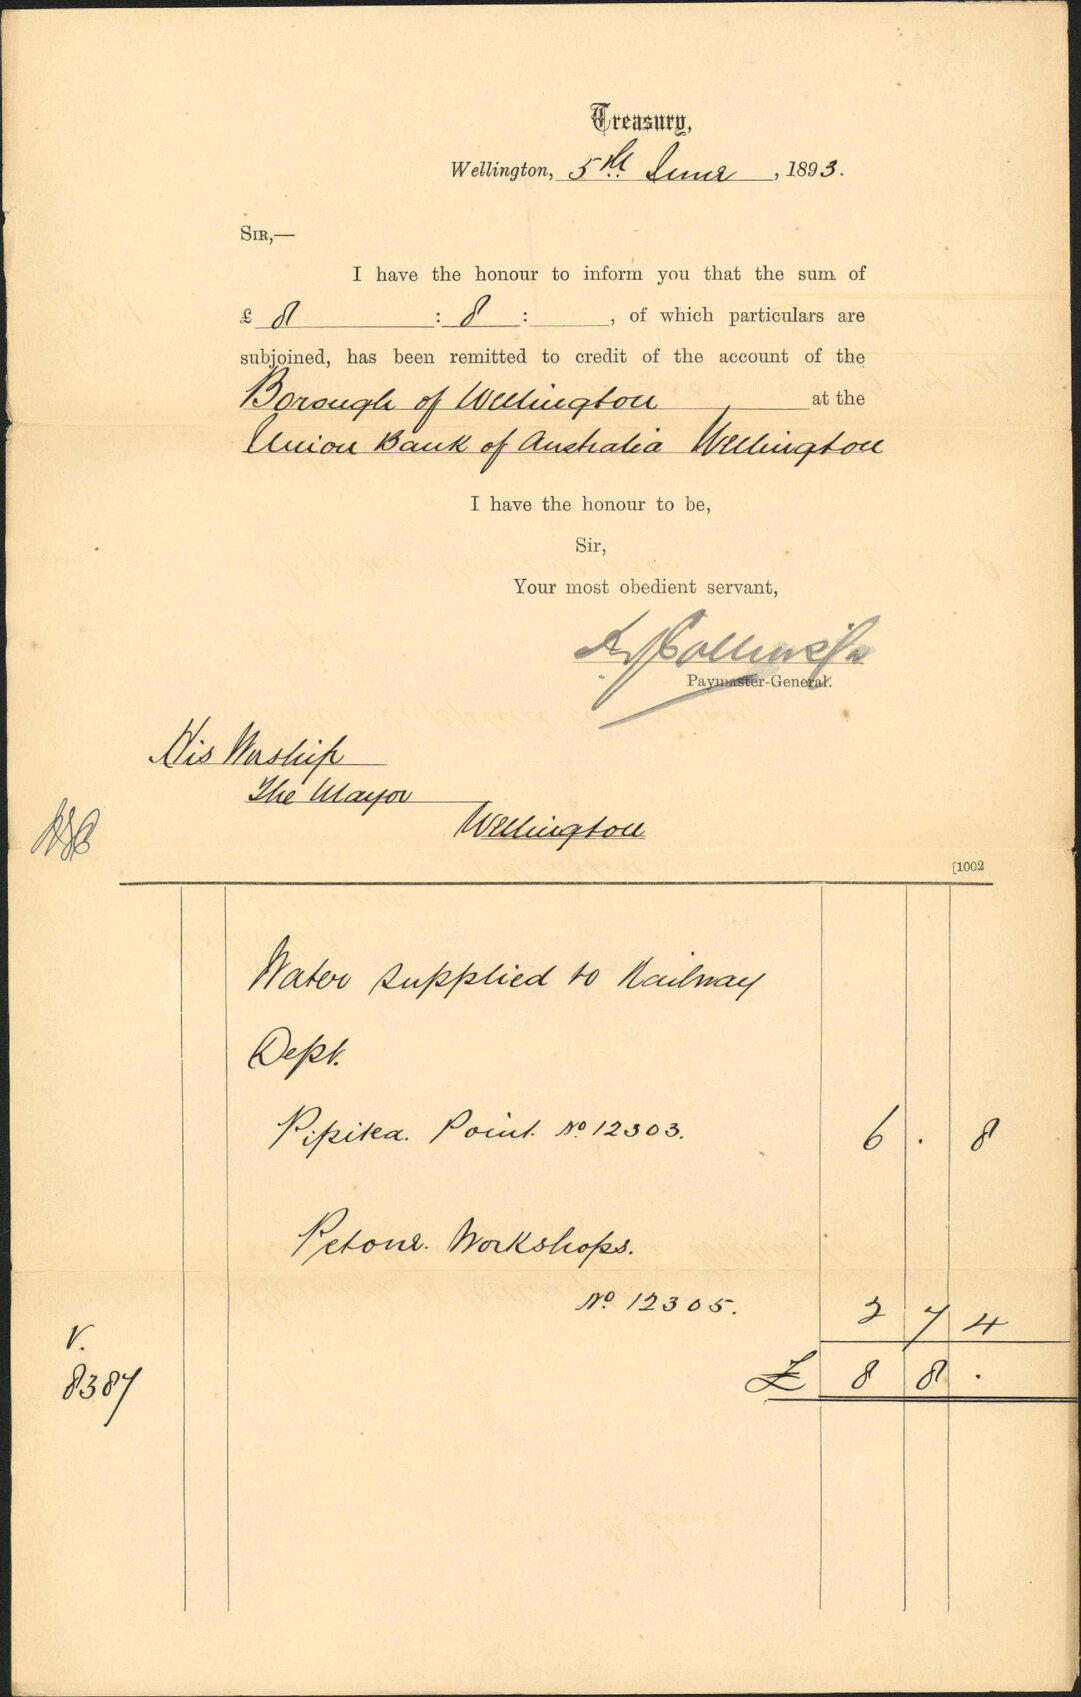 Treasury,
Wellington, 5th June, 1893.
SIR,—
I have the honour to inform you that the sum of
£ 8 : 8 : , of which particulars are
subjoined, has been remitted to credit of the account of the
Borough of Wellington at the
Union Bank of Australia Wellington
I have the honour to be,
Sir,
Your most obedient servant,
Paymaster-General.
His Worship
The Mayor
Wellington
[1002
Water supplied to Railway
Dept.
Pipitea. Point. No 12303. 6 . 8
Petone. Workshops.
No 12305. 2 7 4
V.
8387
£ 8 8 .